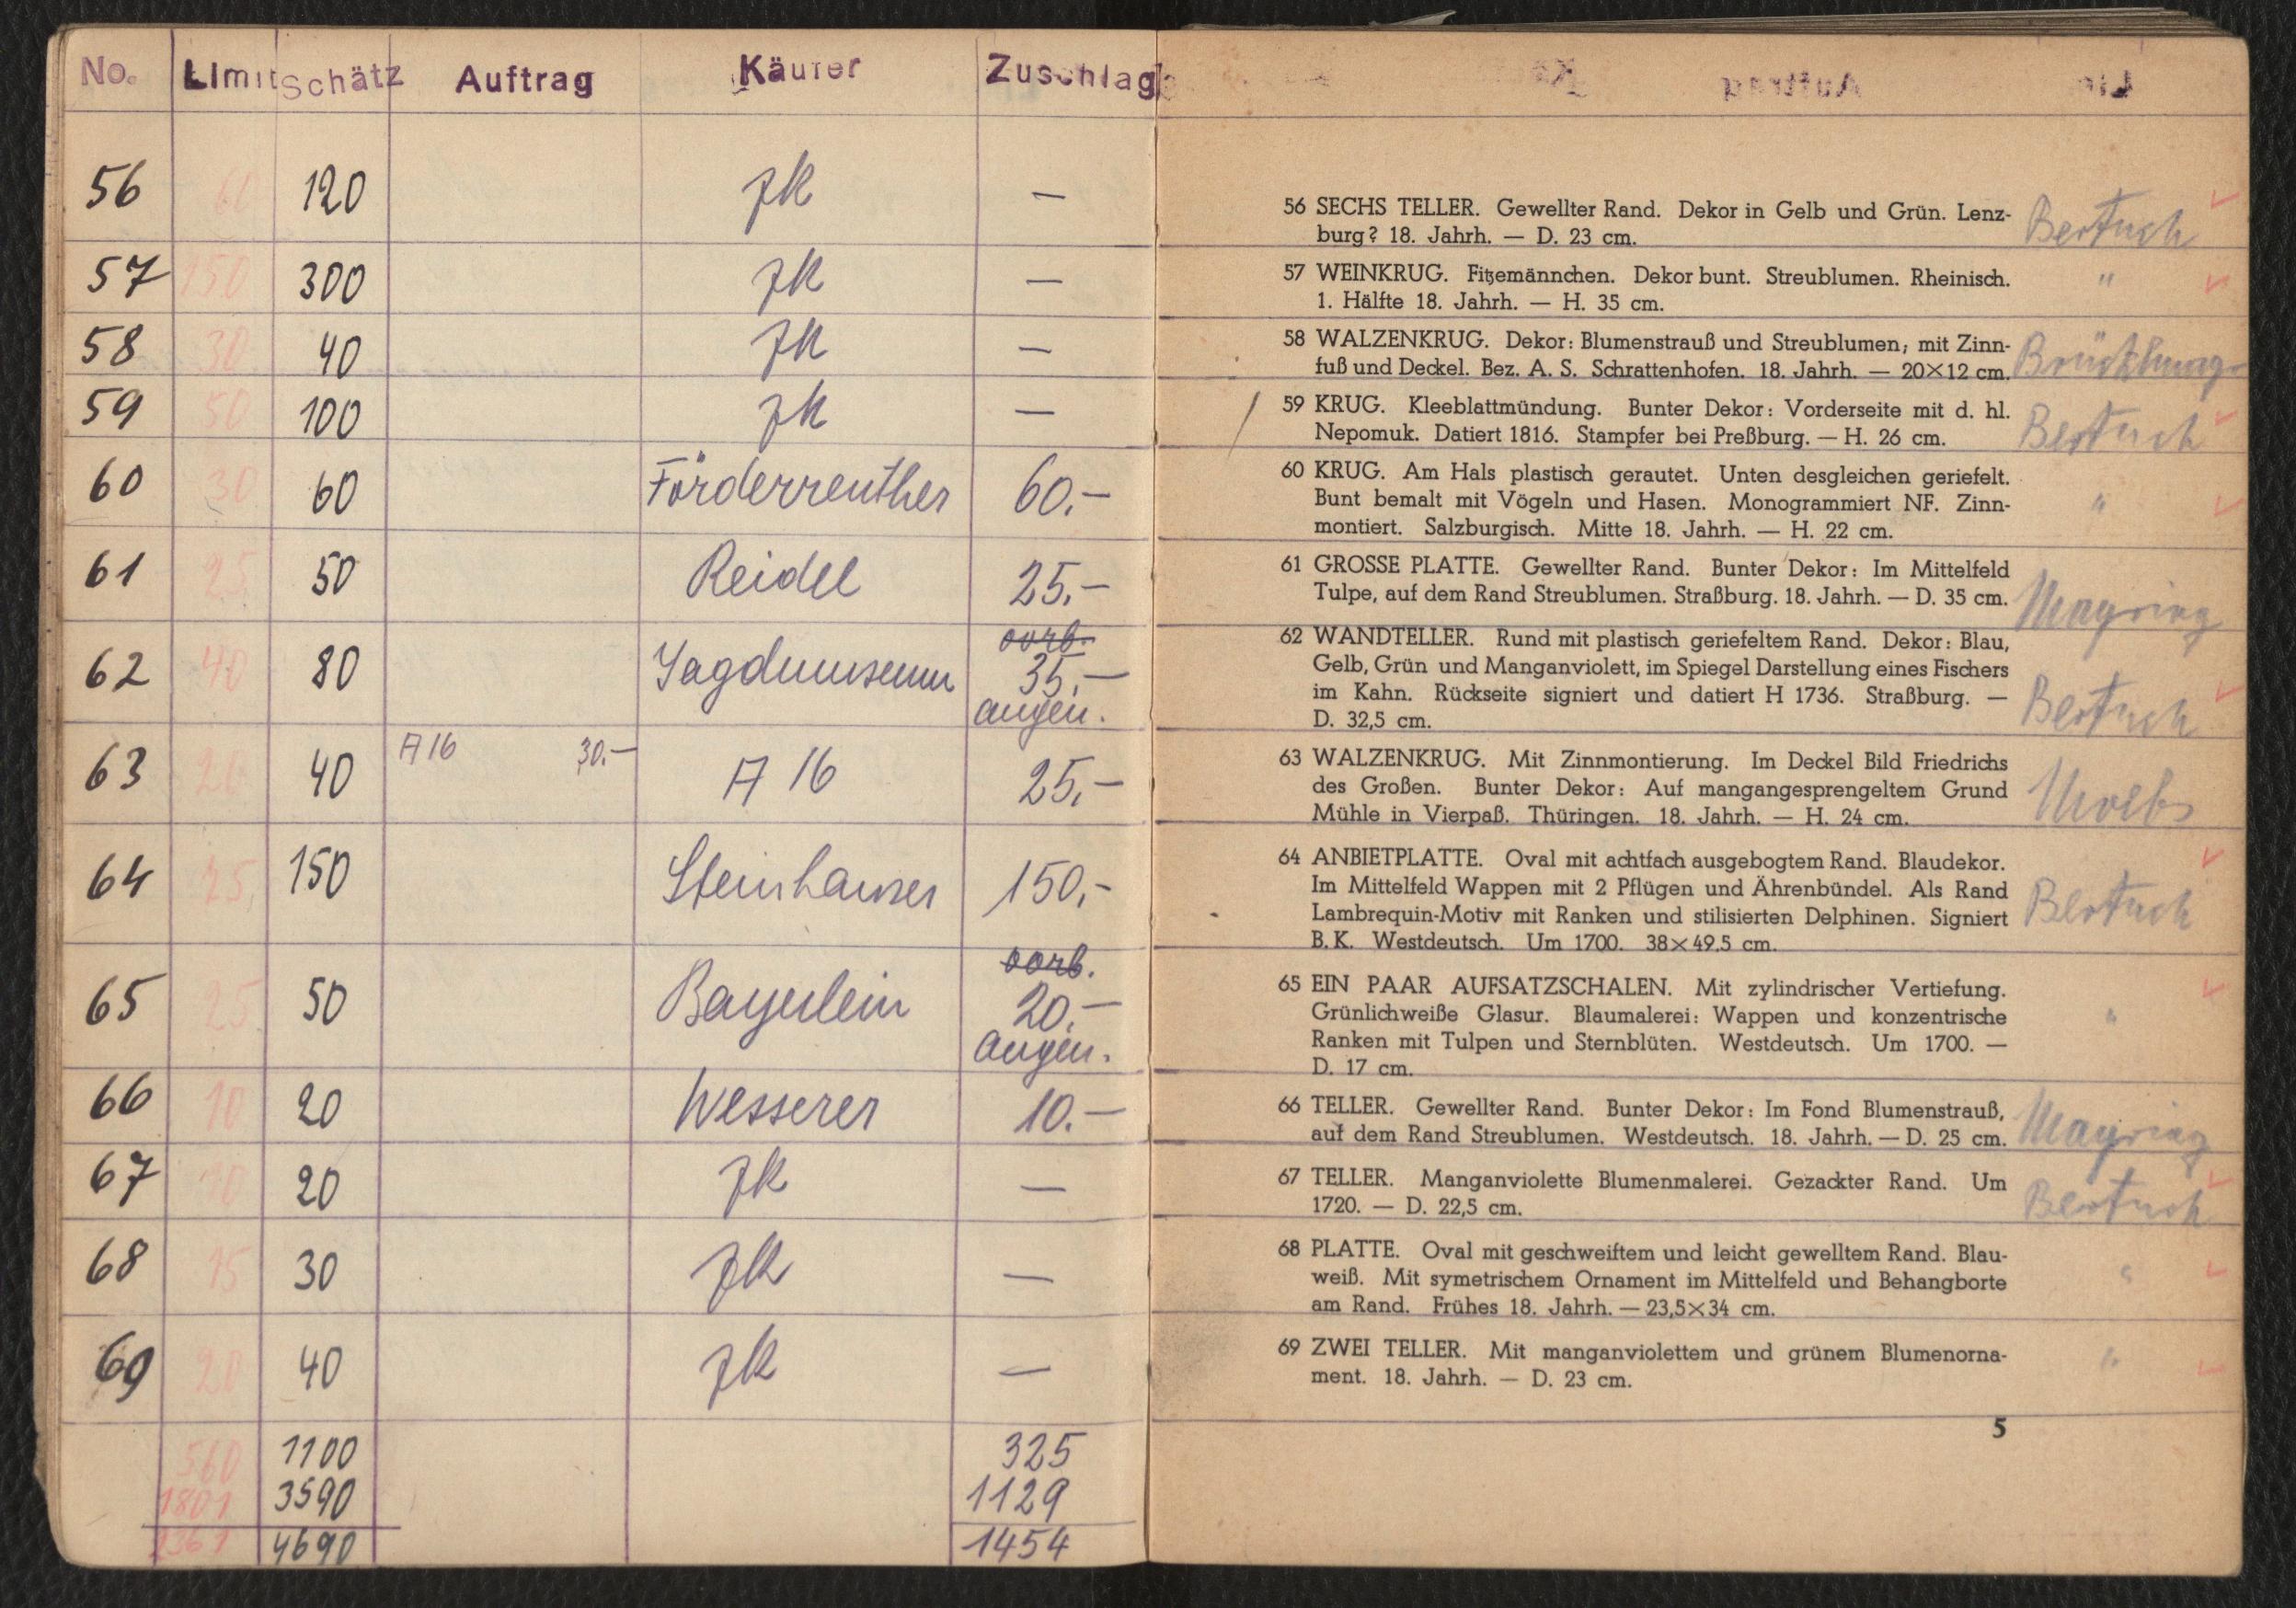 No. Limit Schätz Auftrag Käufer Zuschlag
56 60 120 zk —
57 150 300 zk —
58 30 40 zk —
59 50 100 zk —
60 30 60 Förderreuther 60.—
61 25 50 Reidel 25.—
vorb.
62 40 80 Jagdmuseum 35.—
angen.
63 20 40 A 16 30.— A 16 25.—
64 25 150 Steinhauser 150.—
vorb.
65 25 50 Bayerlein 20.—
angen.
66 10 20 Wesserer 10.—
67 10 20 zk —
68 15 30 zk —
69 20 40 zk —
560 1100 325
1801 3590 1129
2361 4690 1454
56 SECHS TELLER. Gewellter Rand. Dekor in Gelb und Grün. Lenz-
burg? 18. Jahrh. — D. 23 cm. Bertuch
57 WEINKRUG. Fitzemännchen. Dekor bunt. Streublumen. Rheinisch. "
1. Hälfte 18. Jahrh. — H. 35 cm.
58 WALZENKRUG. Dekor: Blumenstrauß und Streublumen; mit Zinn-
fuß und Deckel. Bez. A. S. Schrattenhofen. 18. Jahrh. — 20×12 cm.
59 KRUG. Kleeblattmündung. Bunter Dekor: Vorderseite mit d. hl.
Nepomuk. Datiert 1816. Stampfer bei Preßburg. — H. 26 cm. Bertuch
60 KRUG. Am Hals plastisch gerautet. Unten desgleichen geriefelt.
Bunt bemalt mit Vögeln und Hasen. Monogrammiert NF. Zinn- "
montiert. Salzburgisch. Mitte 18. Jahrh. — H. 22 cm.
61 GROSSE PLATTE. Gewellter Rand. Bunter Dekor: Im Mittelfeld
Tulpe, auf dem Rand Streublumen. Straßburg. 18. Jahrh. — D. 35 cm. Mayring
62 WANDTELLER. Rund mit plastisch geriefeltem Rand. Dekor: Blau,
Gelb, Grün und Manganviolett, im Spiegel Darstellung eines Fischers
im Kahn. Rückseite signiert und datiert H 1736. Straßburg. — Bertuch
D. 32,5 cm.
63 WALZENKRUG. Mit Zinnmontierung. Im Deckel Bild Friedrichs
des Großen. Bunter Dekor: Auf mangangesprengeltem Grund
Mühle in Vierpaß. Thüringen. 18. Jahrh. — H. 24 cm.
64 ANBIETPLATTE. Oval mit achtfach ausgebogtem Rand. Blaudekor.
Im Mittelfeld Wappen mit 2 Pflügen und Ährenbündel. Als Rand
Lambrequin-Motiv mit Ranken und stilisierten Delphinen. Signiert Bertuch
B. K. Westdeutsch. Um 1700. 38×49,5 cm.
65 EIN PAAR AUFSATZSCHALEN. Mit zylindrischer Vertiefung.
Grünlichweiße Glasur. Blaumalerei: Wappen und konzentrische "
Ranken mit Tulpen und Sternblüten. Westdeutsch. Um 1700. —
D. 17 cm.
66 TELLER. Gewellter Rand. Bunter Dekor: Im Fond Blumenstrauß,
auf dem Rand Streublumen. Westdeutsch. 18. Jahrh. — D. 25 cm. Mayring
67 TELLER. Manganviolette Blumenmalerei. Gezackter Rand. Um
1720. — D. 22,5 cm. Bertuch
68 PLATTE. Oval mit geschweiftem und leicht gewelltem Rand. Blau-
weiß. Mit symetrischem Ornament im Mittelfeld und Behangborte "
am Rand. Frühes 18. Jahrh. — 23,5×34 cm.
69 ZWEI TELLER. Mit manganviolettem und grünem Blumenorna- "
ment. 18. Jahrh. — D. 23 cm.
5